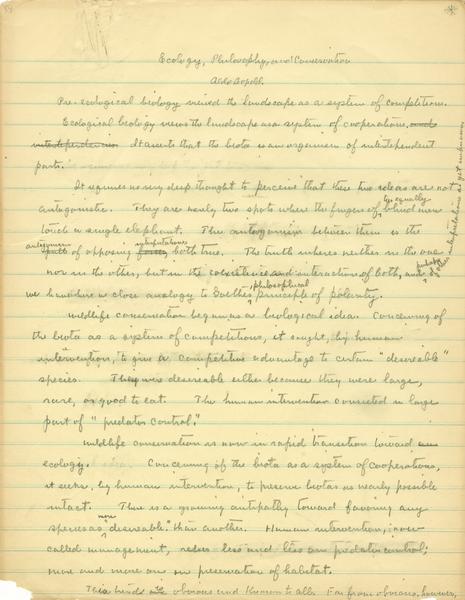 Ecology, Philosophy, and Conservation
Aldo Leopold.
Pre-ecological biology viewed the landscape as a system of competitions.
Ecological biology views the landscape as a system of cooperations, and
interdependencies. It asserts that the biota is an organism of interdependent
parts.
It requires no very deep thought to perceive that these two ideas are not
antagonistic. They are merely two spots where the fingers of by equally blind men
touch a single elephant. The antagonism between them is the
antagonism of opposing interpretations both true. The truth inheres neither in the one
nor in the other, but in the coexistence and interaction of both, and
of other interpretations as yet unknown
we have here a close analogy to Goethe's philosophical principle of polarity.
Wildlife conservation began as a biological idea. Conceiving of
the biota as a system of competitions, it sought, by human
intervention, to give a competitive advantage to certain "desireable"
species. They were desireable either because they were large,
rare, or good to eat. The human intervention consisted in large
part of "predator control."
Wildlife conservation is now in rapid transition toward
ecology. Conceiving of the biota as a system of cooperations,
it seeks, by human intervention, to preserve biotas as nearly possible
intact. There is a growing antipathy toward favoring any
species as more "desireable" than another. Human intervention, now
called management, relies less and less on predator control;
more and more on preservation of habitat.
This trend is obvious and known to all. Far from obvious, however,